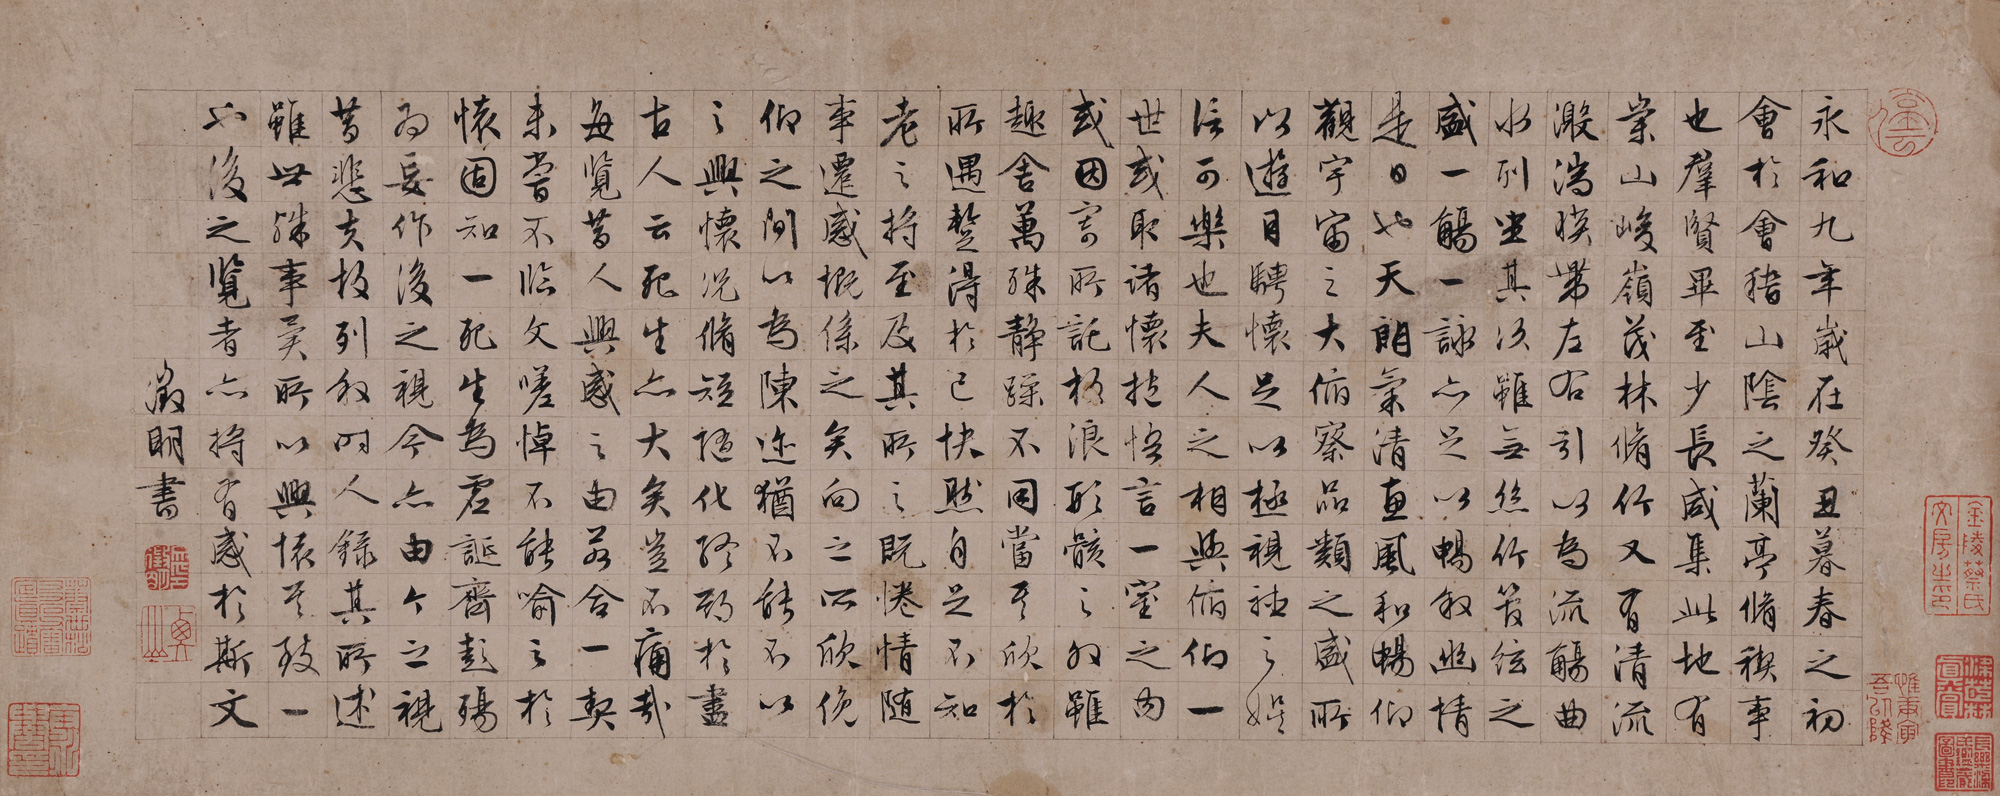 永和九年歲在癸丑暮春之初
會於會稽山陰之蘭亭脩禊事
也羣賢畢至少長咸集此地有
崇山峻嶺茂林脩竹又有清流
激湍暎帶左右引以為流觴曲
水列坐其次雖無絲竹管弦之
盛一觴一詠亦足以暢敘幽情
是日也天朗氣清惠風和暢仰
觀宇宙之大俯察品類之盛所
以遊目騁懷足以極視聽之娛
信可樂也夫人之相與俯仰一
世或取諸懷抱悟言一室之內
或因寄所託放浪形骸之外雖
趣舍萬殊靜躁不同當其欣於
所遇暫得於己快然自足不知
老之將至及其所之既惓情隨
事遷感慨係之矣向之所欣俛
仰之間以為陳迹猶不能不以
之興懷況脩短隨化終期於盡
古人云死生亦大矣豈不痛哉
每覽昔人興感之由若合一契
未嘗不臨文嗟悼不能喻之於
懷固知一死生為虛誕齊彭殤
為妄作後之視今亦由今之視
昔悲夫故列敘時人錄其所述
雖世殊事異所以興懷其致一
也後之覽者亦將有感於斯文
徵明書
停雲
金陵蔡氏文房之印
惟庚寅吾以降